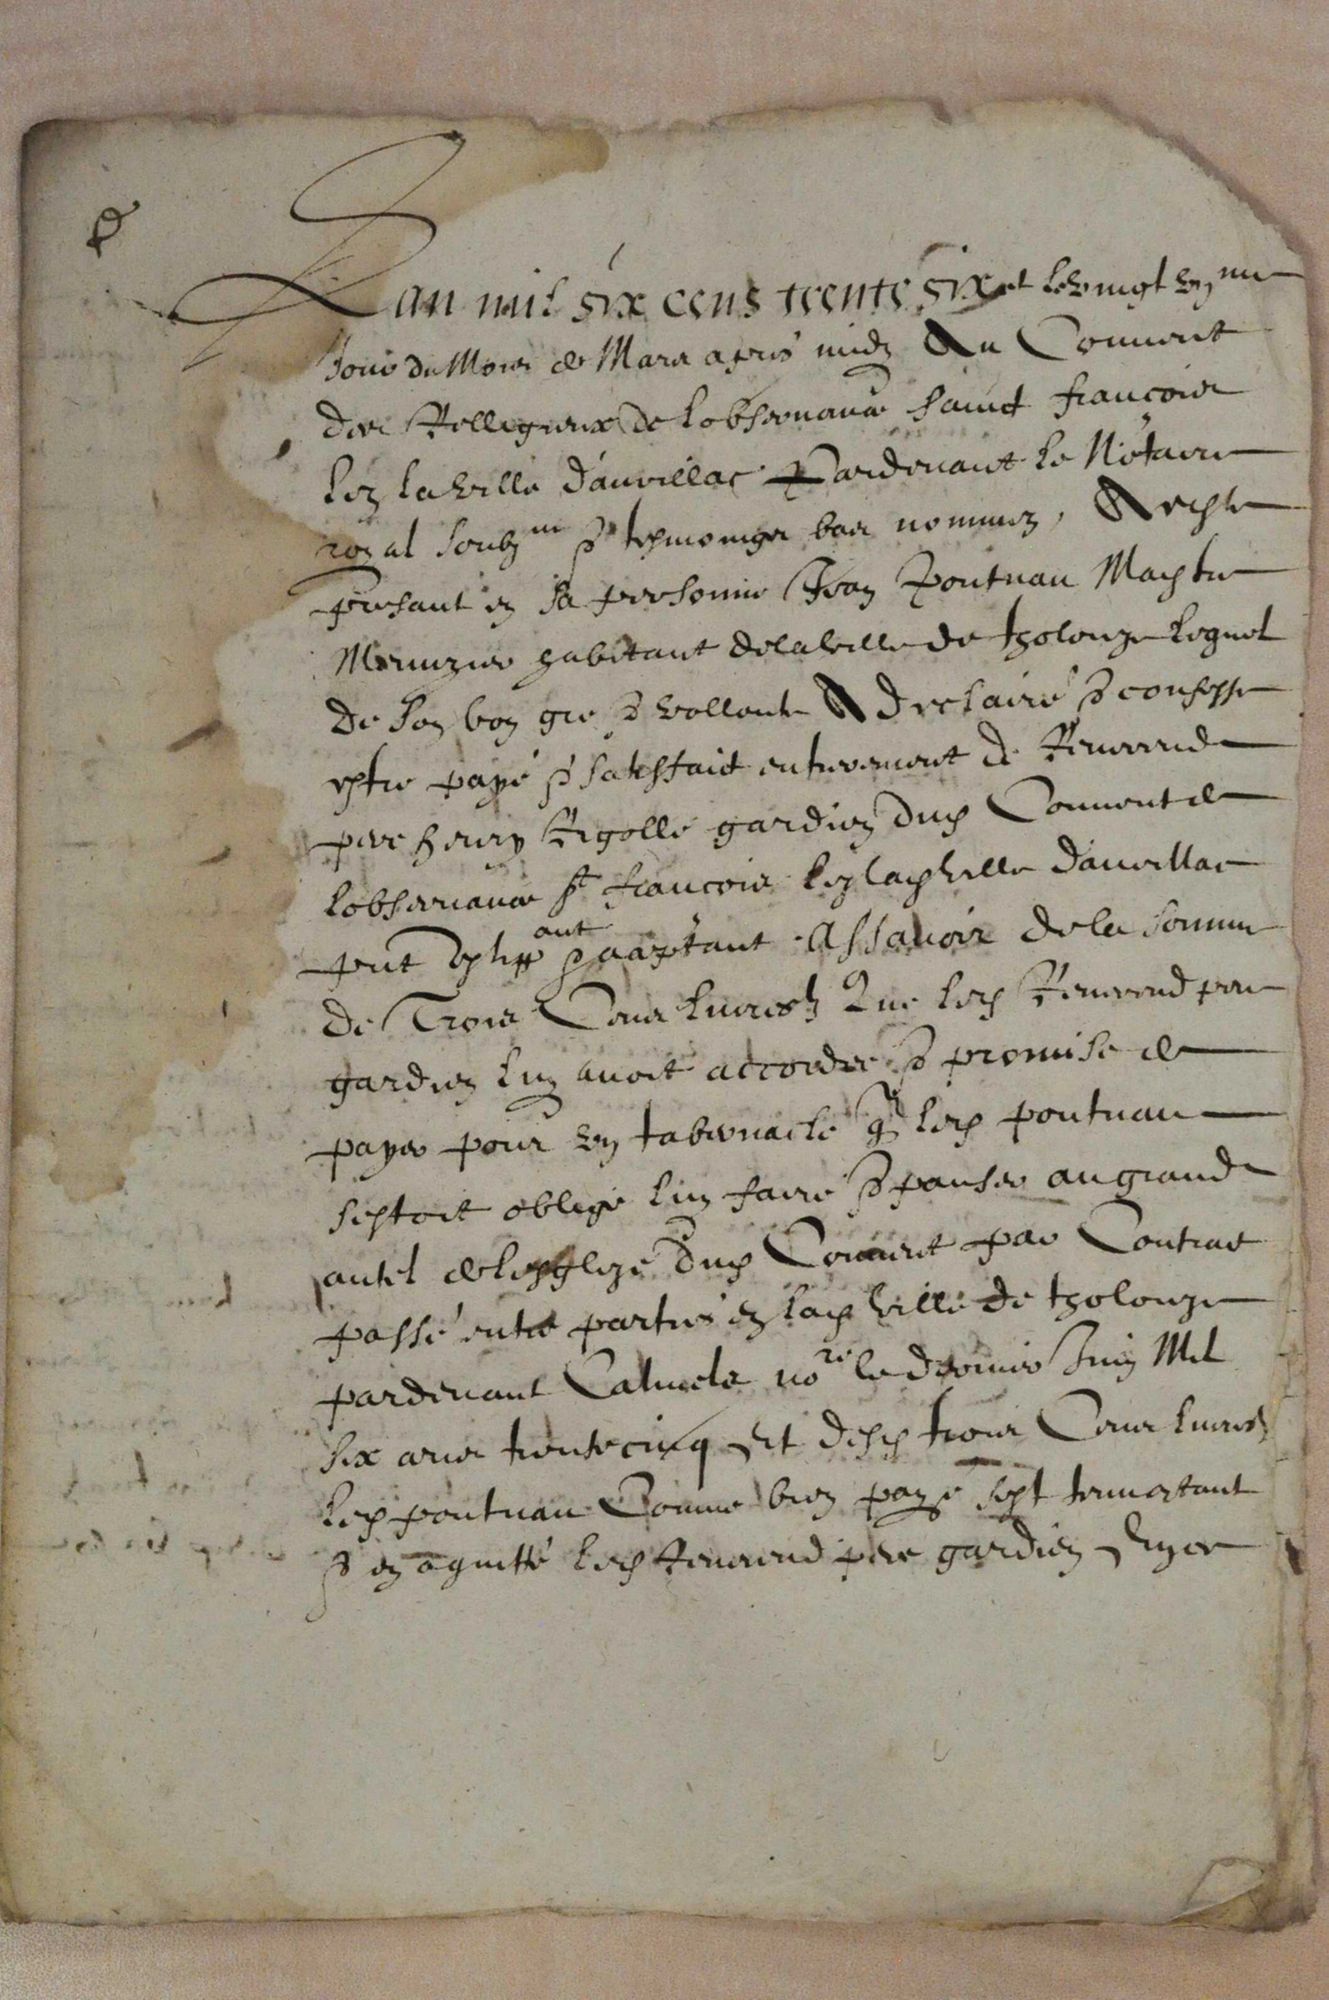 Lan mil six cens trente six et le vingt un me
Jour du Mois de Mars apres midy Au Couvent
des Relligieux de lobservance Sainct francois
lez la ville dauvillac Pardevant le Notaire
royal soubz ne & tesmoinges bas nommez, A este
presant en sa personne Jean Pontuau Maistre
Menuzier habitant de la ville de tholouze lequel
de son bon gre & vollonte A declaire & confesse
estre payé & satisfaict entierement de Reverend
pere henry Rigolle gardien dud Couvent de
lobservance St francois lez lad ville dauvillac
pnt stip ant & acceptant Assavoir de la somme
de Trois Cens livres tz Que led Reverend pere
gardien luy avoit accordee & promise de
payer pour un tabernacle q led pontuau
sestoit obligé luy faire & pauser au grand
autel de lesglize dud Couvent par Contract
passé entre parties en lad ville de tholouze
pardevant Calmels no re le dernier Juin Mil
six cens trente cinq Et desd trois Cens livres
led pontuau Comme bien payé sest tenu contant
& en a quitté led Reverend pere gardien